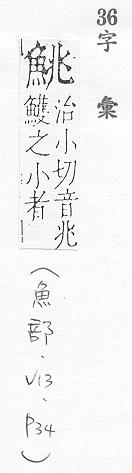 36字 彙
鮡
治小切音兆
鱯之小者
(魚部.V13.P34)